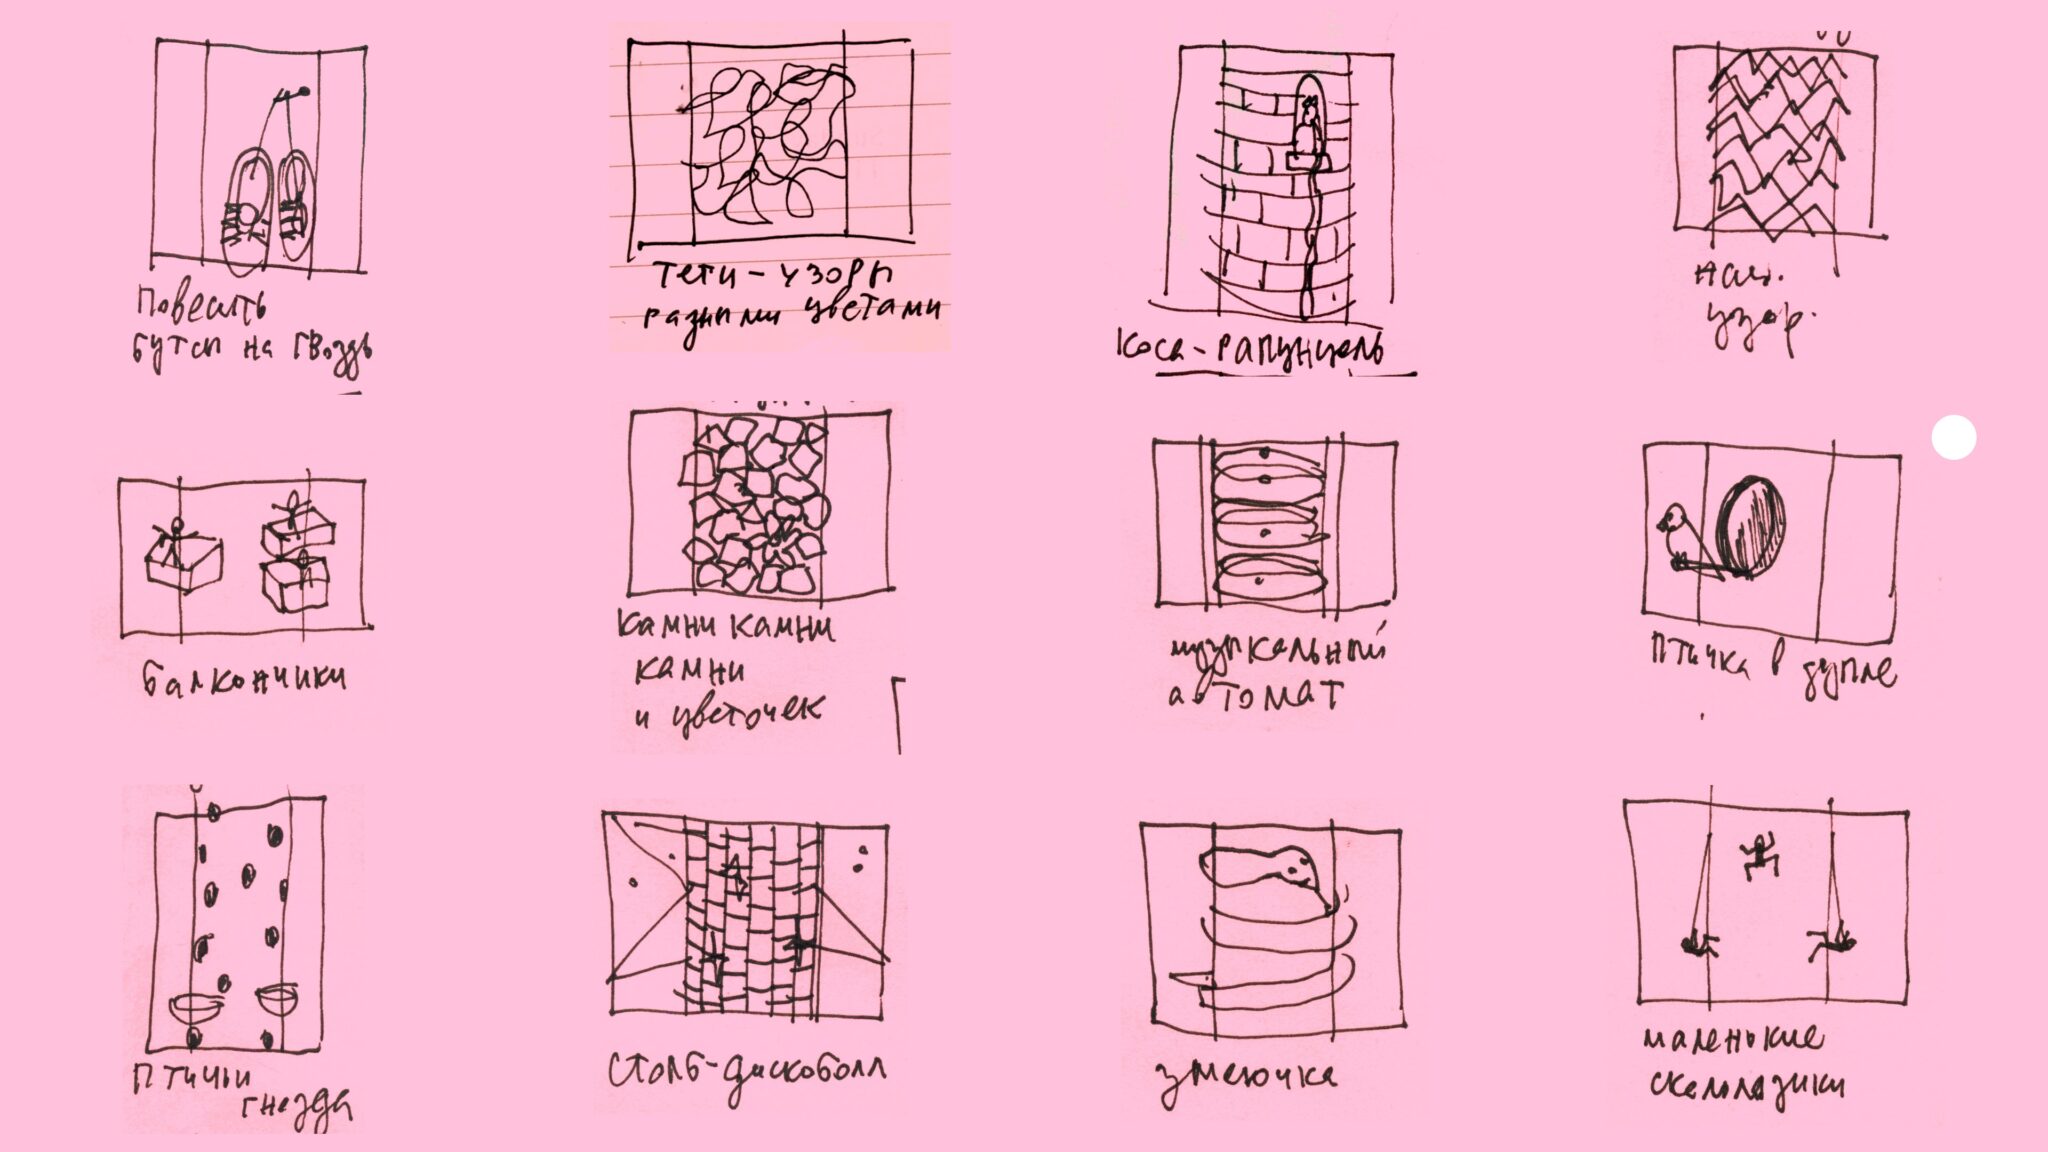 Повесить
бутсы на гвоздь
теги - узоры
разными цветами
коса-рапунцель
узор.
балкончики
камни камни
камни
и цветочек
музыкальный
автомат
птичка в дупле
птичьи
гнезда
столб-дискоболл
змеючка
маленькие
скалолазики